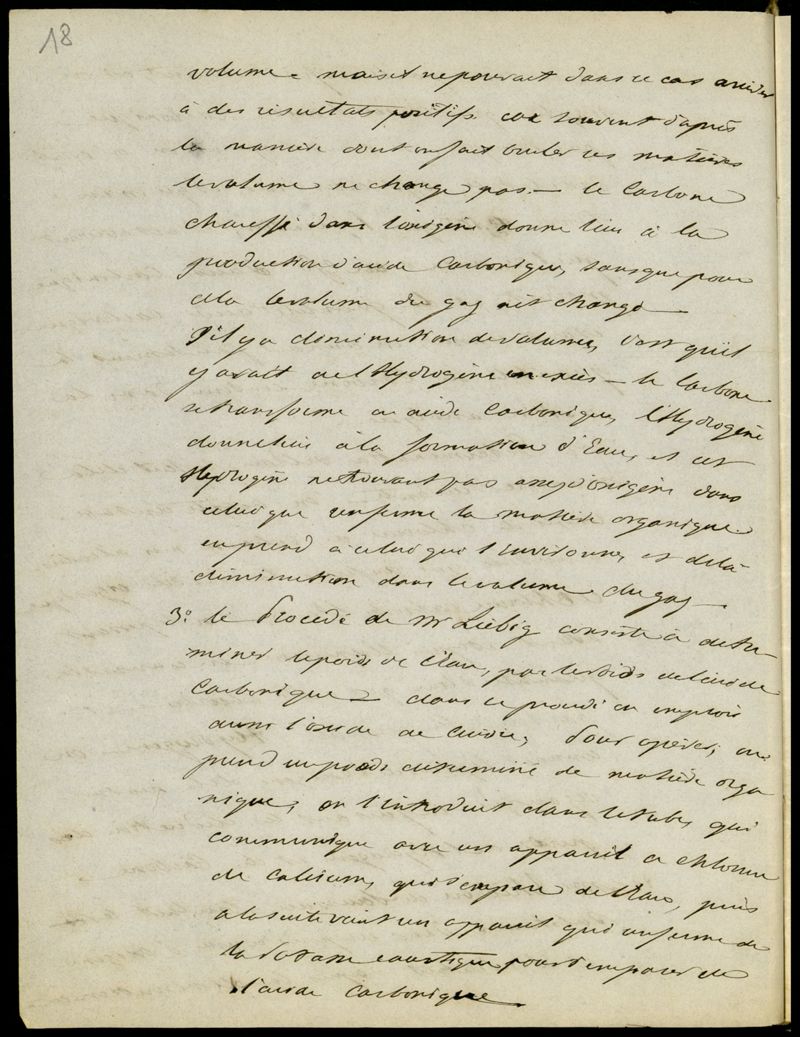 18
volume = mais il ne pouvait dans ce cas arriver
à des résultats positifs car souvent d'après
la manière dont on fait bruler ces matières
le volume ne change pas. — le Carbone
chauffé dans l'oxigène donne lieu à la
production d'acide Carbonique, sans que pour
cela le volume du gaz ait changé —
S'il y a diminution de volume, c'est qu'il
y avait de l'Hydrogène en excès — le Carbone
se transforme en acide Carbonique, l'Hydrogène
donne lieu à la formation d'Eau, et cet
Hydrogène ne trouvant pas assez d'oxigène dans
celui que renferme la matière organique
en prend à celui qui l'environne, et de là
diminution dans le volume du gaz —
3º le Procédé de Mr Liebig consiste à déter-
miner le poids de l'eau, par le poids de l'acide
Carbonique — dans ce procédé on emploie
aussi l'oxide de cuivre, Pour opérer, on
prend un poids déterminé de matière orga
nique, on l'introduit dans le tube, qui
communique avec un appareil a chlorure
de calcium, qui s'empare de l'Eau, puis
a la suite vient un appareil qui renferme de
la Potasse caustique pour s'emparer de
l'acide Carbonique